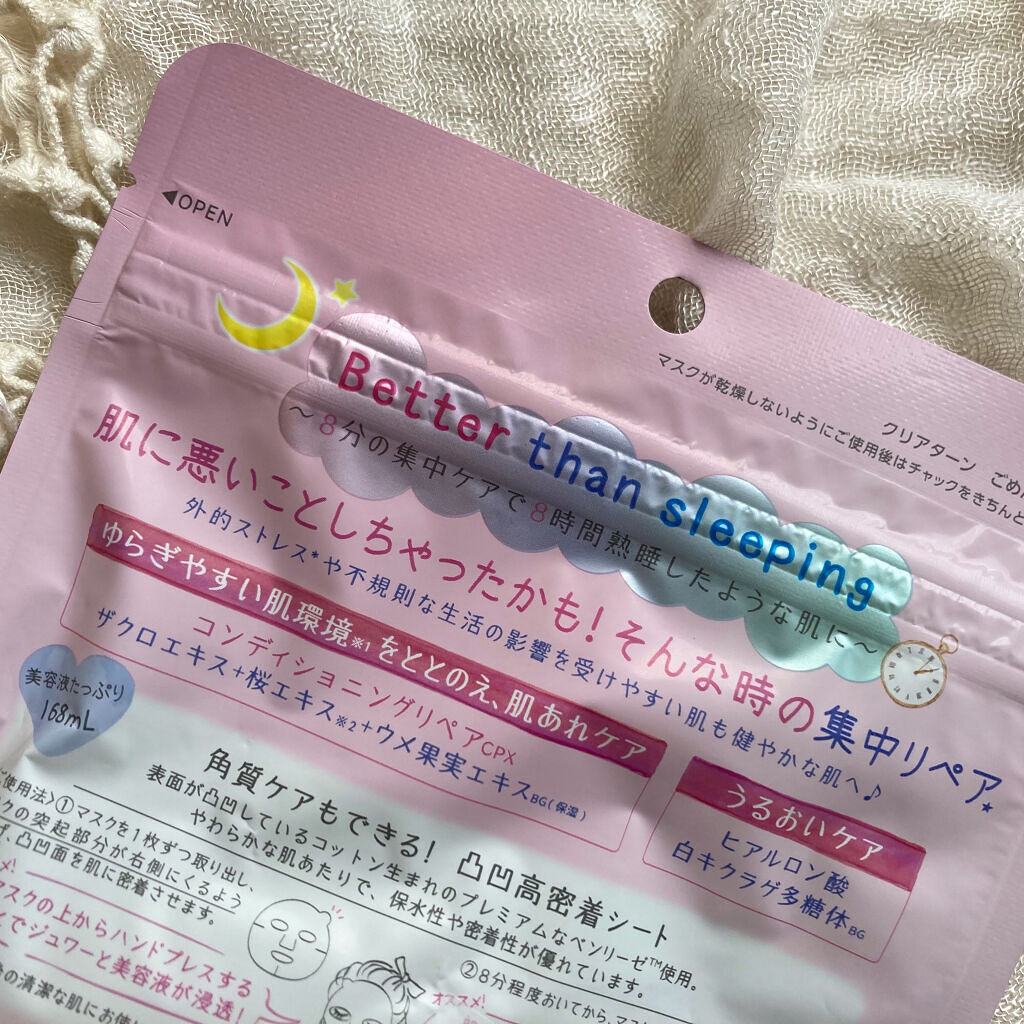 ◀OPEN
クリアターン ごめ
マスクが乾燥しないようにご使用後はチャックをきちんと
Better than sleeping
～8分の集中ケアで8時間熟睡したような肌に～
肌に悪いことしちゃったかも!そんな時の集中リペア★
外的ストレス*や不規則な生活の影響を受けやすい肌も健やかな肌へ♪
ゆらぎやすい肌環境※1をととのえ、肌あれケア
コンディショニングリペアCPX
ザクロエキス+桜エキス※2+ウメ果実エキスBG(保湿)
うるおいケア
ヒアルロン酸
白キクラゲ多糖体BG
美容液たっぷり
168mL
角質ケアもできる! 凸凹高密着シート
表面が凸凹しているコットン生まれのプレミアムなベンリーゼ™使用。
やわらかな肌あたりで、保水性や密着性が優れています。
使用法〉①マスクを1枚ずつ取り出し、
クの突起部分が右側にくるよう
凸凹面を肌に密着させます。
②8分程度おいてから、マス
オススメ!
マスクの上からハンドプレスする
でジュワーと美容液が浸透!
の清潔な肌にお使い